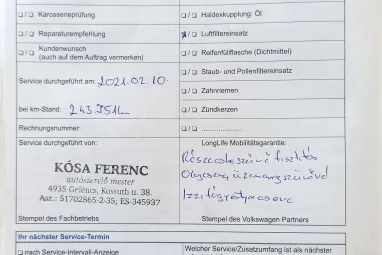 ❑/❑ Karosserieprüfung
❑/❑ Haldexkupplung: Öl
❑/❑ Reparaturempfehlung
❑/❑ Luftfiltereinsatz
❑/❑ Kundenwunsch
(auch auf dem Auftrag vermerken)
❑/❑ Reifenfüllflasche (Dichtmittel)
Service durchgeführt am: 2021.02.10.
❑/❑ Staub- und Pollenfiltereinsatz
❑/❑ Zahnriemen
bei km-Stand:
❑/❑ Zündkerzen
Rechnungsnummer:
❑/❑ ....................
Service durchgeführt von:
LongLife Mobilitätsgarantie:
KÓSA FERENC
autószerelő mester
4935 Gelénes, Kossuth u. 38.
Asz.: 51702865-2-35; ES-345937
Stempel des Fachbetriebs
Stempel des Volkswagen Partners
Ihr nächster Service-Termin
❑ nach Service-Intervall-Anzeige
Welcher Service/Zusatzumfang ist als nächster